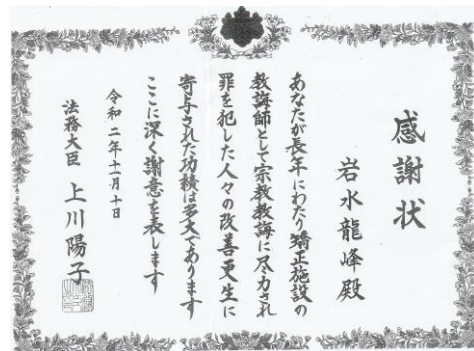 感謝状
岩水龍峰殿
あなたが長年にわたり矯正施設の
教誨師として宗教教誨に尽力され
罪を犯した人々の改善更生に
寄与された功績は多大であります
ここに深く謝意を表します
令和二年十一月十日
法務大臣 上川陽子